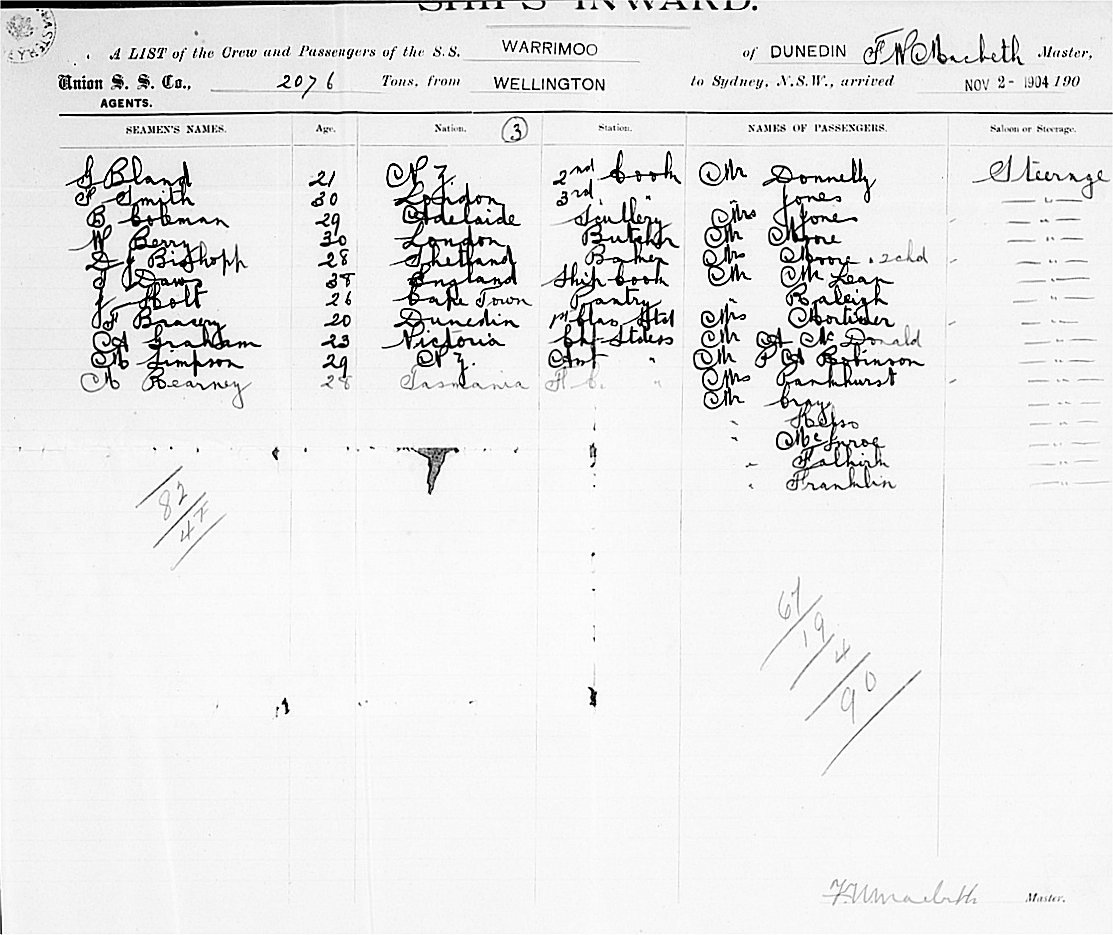 SHIPS INWARD.
A LIST of the Crew and Passengers of the S.S. WARRIMOO of DUNEDIN F W Macbeth Master,
Union S. S. Co., 2076 Tons, from WELLINGTON to Sydney, N.S.W., arrived NOV 2 - 1904 190
AGENTS.
SEAMEN'S NAMES. Age. Nation. (3) Station. NAMES OF PASSENGERS. Saloon or Steerage.
G Bland 21 N Z 2nd Cook Mr Donnelly Steerage
F Smith 30 London 3rd " " Jones — " —
B Coleman 29 Adelaide Scullery Mrs Jones — " —
W Berry 30 London Butcher Mr Moore — " —
D J Bishopp 28 Shetland Baker Mrs Moore . 2 chd — " —
T Daws 38 England Ship Cook Mr McLean — " —
J Holt 26 Cape Town Pantry " Raleigh — " —
F Bracey 20 Dunedin 1st Clas Std Mrs Mortimer — " —
A Graham 23 Victoria Ch Stdess Mr A McDonald — " —
M Simpson 29 N Z. Asst " Mr P A Robinson — " —
M Kearney 28 Tasmania F C. " Mrs Pankhurst — " —
Mr Cray — " —
" Kelso — " —
" McInroe — " —
" Falkirk — " —
" Franklin — " —
82
47
67
19
4
90
F.W Macbeth Master.